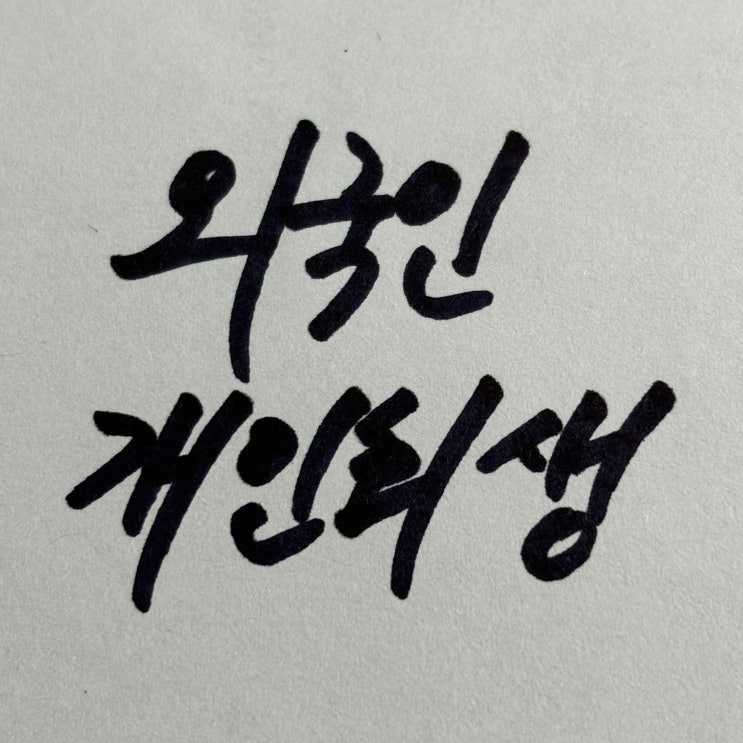 외국인
개인회생